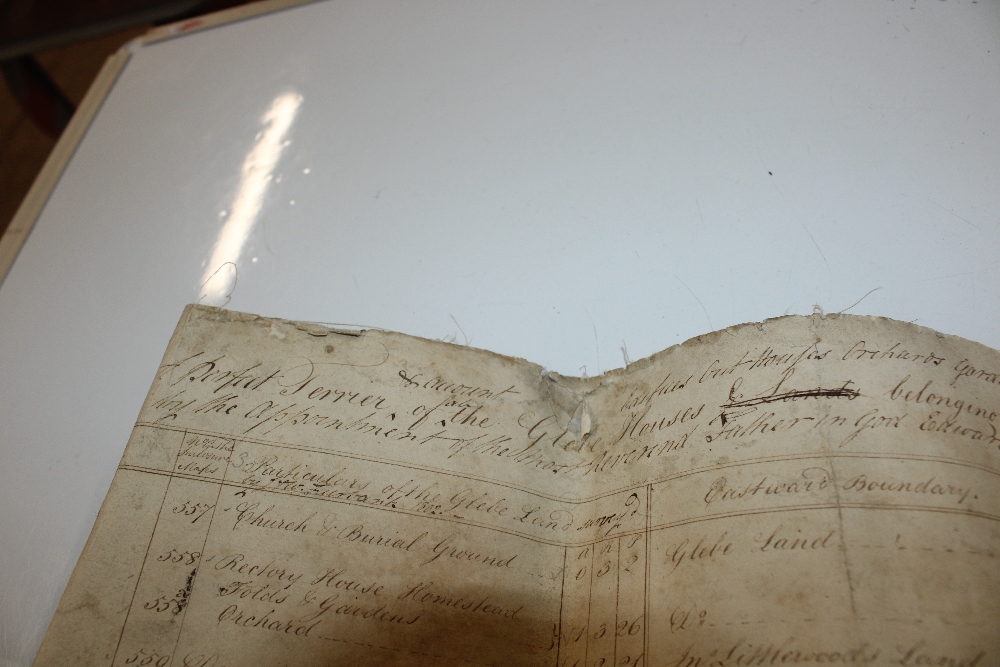 A Perfect Terrier & account of the Glebe Houses & Lands belonging
Barns Out Houses Orchards Gard
by the Appointment of the Most Reverend Father in God Edward
No of the Inclosure Maps
Particulars of the Glebe Land survey'd
Eastward Boundary.
A R P
557 Church & Burial Ground 0 3 2 Glebe Land
558 Rectory House Homestead
Folds & Gardens
Orchard 1 3 26 Do
559
Jno Littlewood's Land